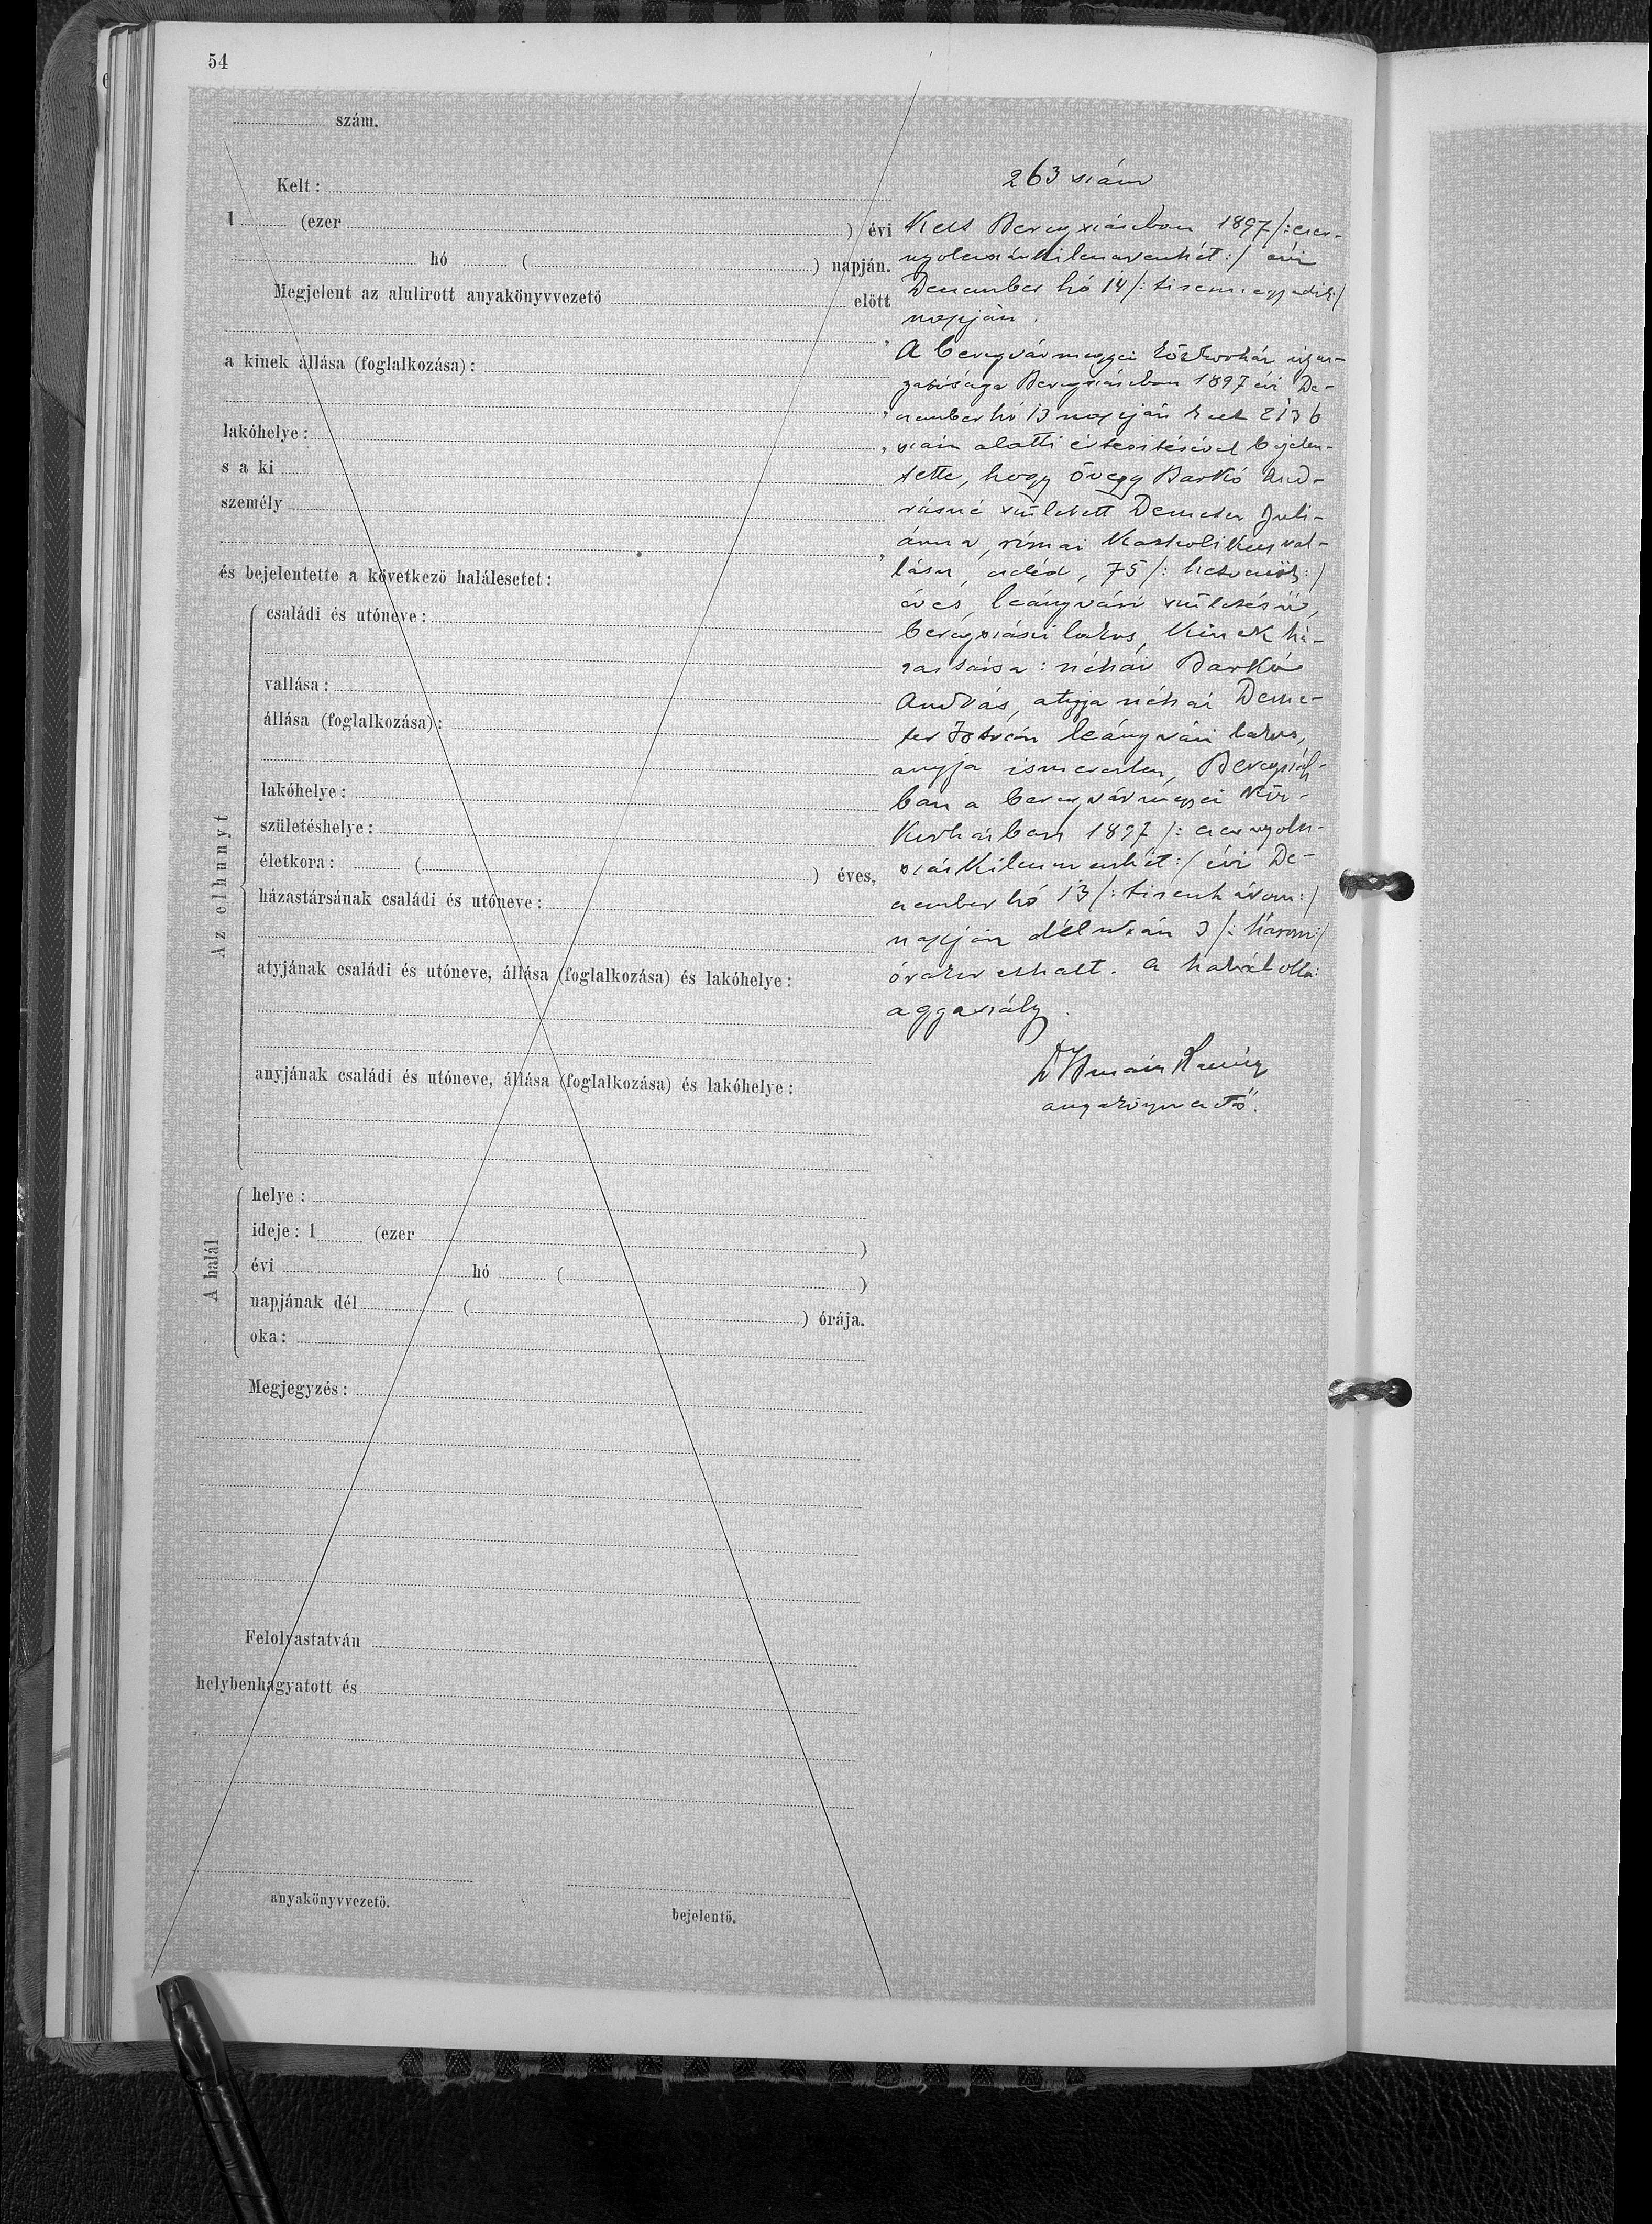 54
szám.
Kelt :
1 (ezer ) évi
hó ( ) napján.
Megjelent az alulirott anyakönyvvezető előtt
,
a kinek állása (foglalkozása) :
,
lakóhelye : ,
s a ki
személy
,
és bejelentette a következő halálesetet :
Az elhunyt
családi és utóneve :
vallása :
állása (foglalkozása) :
lakóhelye :
születéshelye :
életkora : ( ) éves,
házastársának családi és utóneve :
atyjának családi és utóneve, állása (foglalkozása) és lakóhelye :
anyjának családi és utóneve, állása (foglalkozása) és lakóhelye :
A halál
helye :
ideje : 1 (ezer )
évi hó ( )
napjának dél ( ) órája.
oka :
Megjegyzés :
Felolvastatván
helybenhagyatott és
anyakönyvvezető.
bejelentő.
263 szám
Kelt Beregszászban 1897 /: ezer-
nyolczszázkilenczvenhét :/ évi
December hó 14 /: tizennegyedik :/
napján.
A beregvármegyei közkorház igaz-
gatósága Beregszászban 1897 évi De-
czember hó 13 napján kelt 2136
szám alatti értesitésével bejelen-
tette, hogy özvegy Barkó And-
rásné született Demeter Juli-
ánna, római katholikus val-
lásu, cseléd, 75 /: hetvenöt :/
éves, leányvári születésü,
beregszászi lakos, kinek há-
zastársa : néhai Barkó
András, atyja néhai Deme-
ter István leányvári lakos,
anyja ismeretlen, Beregszász-
ban a beregvármegyei köz-
korházban 1897 /: ezernyolcz-
százkilenczvenhét :/ évi De-
czember hó 13 /: tizenhárom :/
napján délután 3 /: három :/
órakor elhalt. A halál oka :
aggaszály.
anyakönyvvezető.